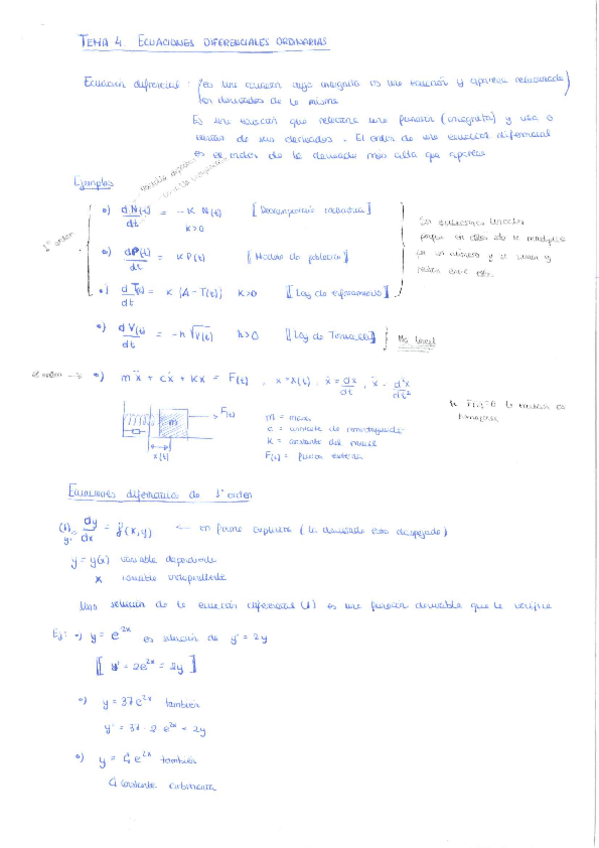 TEMA 4. ECUACIONES DIFERENCIALES ORDINARIAS
Ecuación diferencial: (es una ecuación cuya incógnita es una función y aparecen relacionada)
los derivados de la misma
Es una ecuación que relaciona una función (incógnita) y una o
varias de sus derivadas. El orden de una ecuación diferencial
es el orden de la derivada más alta que aparece
variable dependiente
variable independiente
Ejemplos
1er orden
•) dN(t)/dt = -K N(t) [Desintegración radiactiva]
K>0
•) dP(t)/dt = K P(t) [Modelo de población]
•) dT(t)/dt = K (A-T(t)) K>0 [Ley de enfriamiento]
Son ecuaciones lineales
porque en ellas solo se multiplica
por un número y se suman y
restan entre ellas.
•) dV(t)/dt = -k √V(t) k>0 [Ley de Torricelli] No lineal
2º orden → •) mẍ + cẋ + Kx = F(t), x=x(t), ẋ = dx/dt, ẍ = d²x/dt²
Si F(t)=0 la ecuación es
homogénea
m F(t)
x(t)
m = masa
c = constante de
K = constante del muelle
F(t) = fuerza externa
Ecuaciones diferenciales de 1er orden
(1) dy/dx = f(x,y) ← en forma explícita (la derivada está despejada)
y'
y = y(x) variable dependiente
x variable independiente
Una solución de la ecuación diferencial (1) es una función derivable que la verifica
Ej: •) y = e^2x es solución de y' = 2y
[[ y' = 2e^2x = 2y ]]
•) y = 37e^2x también
y' = 37·2 e^2x = 2y
•) y = C₁e^2x también
C₁ constante arbitraria